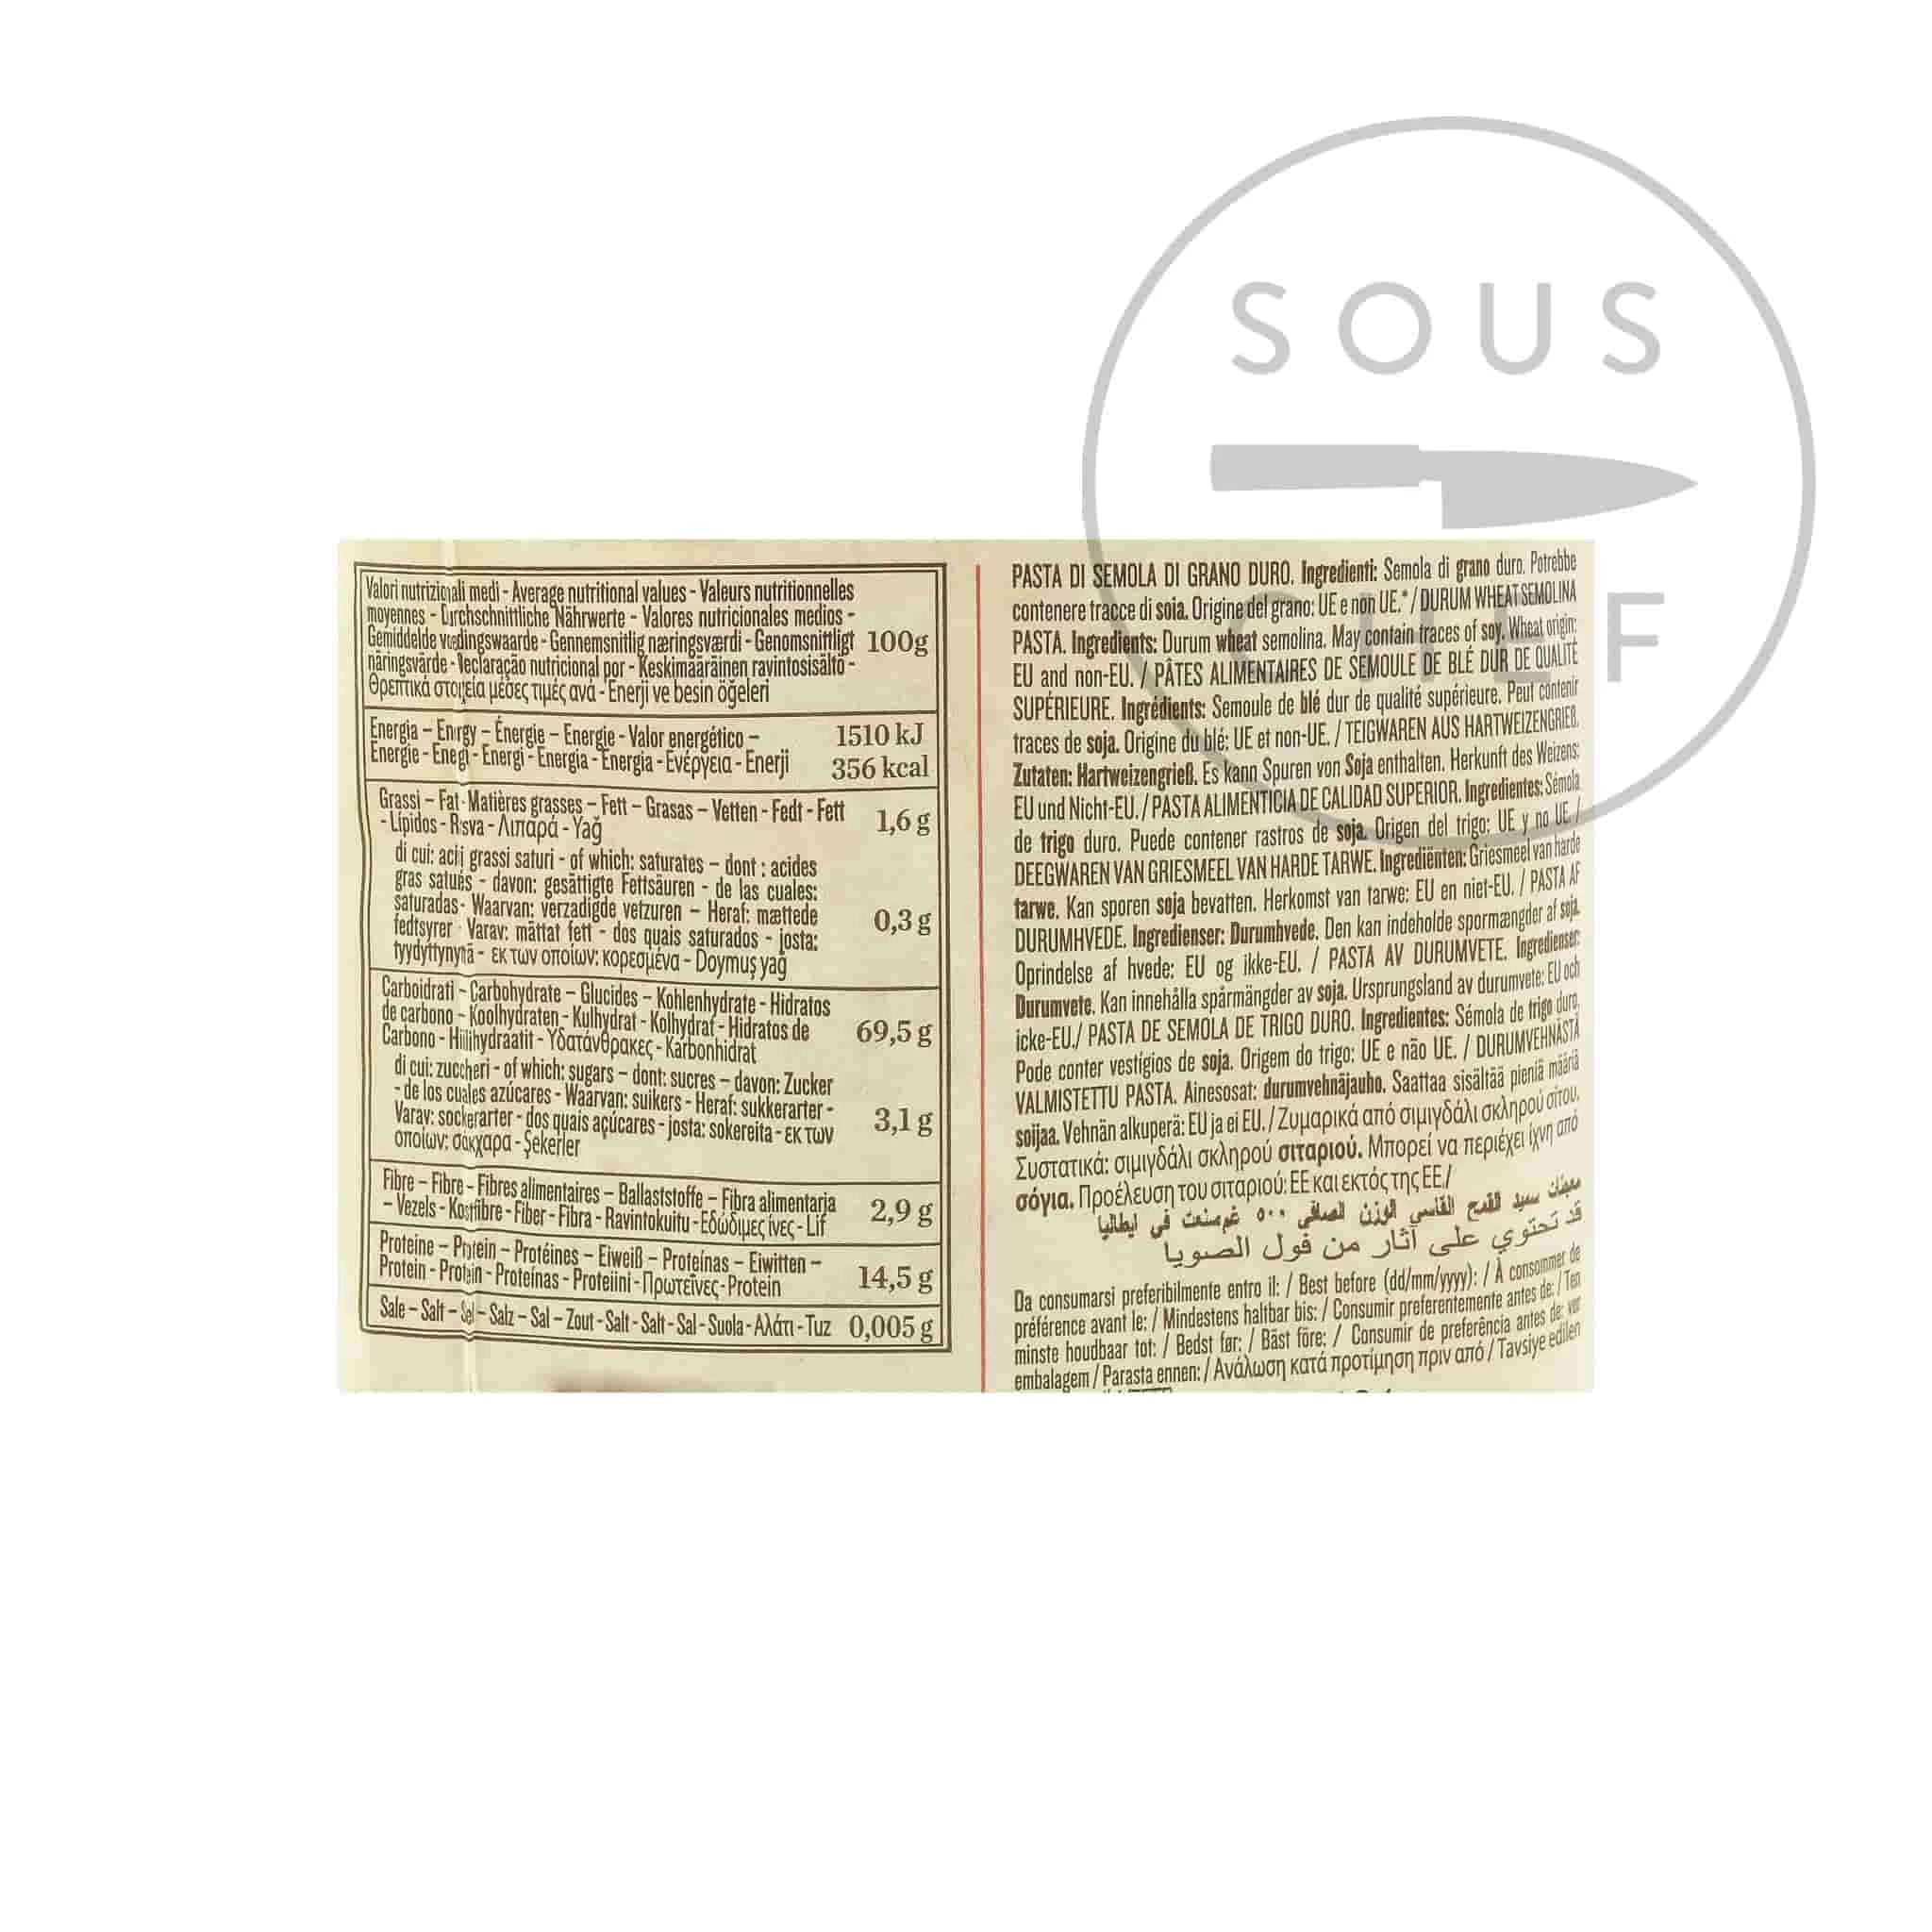 SOUS
CHEF
Valori nutrizionali medi - Average nutritional values - Valeurs nutritionnelles
moyennes - Durchschnittliche Nährwerte - Valores nutricionales medios -
Gemiddelde voedingswaarde - Gennemsnitlig næringsværdi - Genomsnittligt
näringsvärde - Declaração nutricional por - Keskimääräinen ravintosisältö -
Θρεπτικά στοιχεία μέσες τιμές ανά - Enerji ve besin öğeleri
100g
Energia – Energy – Énergie – Energie - Valor energético –
Energie - Energi - Energi - Energia - Energia - Ενέργεια - Enerji
1510 kJ
356 kcal
Grassi – Fat - Matières grasses – Fett – Grasas – Vetten - Fedt - Fett
- Lípidos - Rasva - Λιπαρά - Yağ
1,6 g
di cui: acidi grassi saturi - of which: saturates – dont : acides
gras saturés - davon: gesättigte Fettsäuren - de las cuales:
saturadas - Waarvan: verzadigde vetzuren – Heraf: mættede
fedtsyrer - Varav: mättat fett - dos quais saturados - josta:
tyydyttynyttä - εκ των οποίων: κορεσμένα - Doymuş yağ
0,3 g
Carboidrati – Carbohydrate – Glucides – Kohlenhydrate - Hidratos
de carbono - Koolhydraten - Kulhydrat - Kolhydrat - Hidratos de
Carbono - Hiilihydraatit - Υδατάνθρακες - Karbonhidrat
69,5 g
di cui: zuccheri - of which: sugars – dont: sucres – davon: Zucker
- de los cuales azúcares - Waarvan: suikers - Heraf: sukkerarter -
Varav: sockerarter - dos quais açúcares - josta: sokereita - εκ των
οποίων: σάκχαρα - Şekerler
3,1 g
Fibre – Fibre - Fibres alimentaires – Ballaststoffe – Fibra alimentaria
– Vezels - Kostfibre - Fiber - Fibra - Ravintokuitu - Εδώδιμες ίνες - Lif
2,9 g
Proteine – Protein – Protéines – Eiweiß – Proteínas – Eiwitten –
Protein - Protein - Proteínas - Proteiini - Πρωτεΐνες - Protein
14,5 g
Sale – Salt – Sel – Salz – Sal – Zout - Salt - Salt - Sal - Suola - Αλάτι - Tuz 0,005 g
PASTA DI SEMOLA DI GRANO DURO. Ingredienti: Semola di grano duro. Potrebbe
contenere tracce di soia. Origine del grano: UE e non UE.* / DURUM WHEAT SEMOLINA
PASTA. Ingredients: Durum wheat semolina. May contain traces of soy. Wheat origin:
EU and non-EU. / PÂTES ALIMENTAIRES DE SEMOULE DE BLÉ DUR DE QUALITÉ
SUPÉRIEURE. Ingrédients: Semoule de blé dur de qualité supérieure. Peut contenir
traces de soja. Origine du blé: UE et non-UE. / TEIGWAREN AUS HARTWEIZENGRIEß.
Zutaten: Hartweizengrieß. Es kann Spuren von Soja enthalten. Herkunft des Weizens:
EU und Nicht-EU. / PASTA ALIMENTICIA DE CALIDAD SUPERIOR. Ingredientes: Sémola
de trigo duro. Puede contener rastros de soja. Origen del trigo: UE y no UE. /
DEEGWAREN VAN GRIESMEEL VAN HARDE TARWE. Ingrediënten: Griesmeel van harde
tarwe. Kan sporen soja bevatten. Herkomst van tarwe: EU en niet-EU. / PASTA AF
DURUMHVEDE. Ingredienser: Durumhvede. Den kan indeholde spormængder af soja.
Oprindelse af hvede: EU og ikke-EU. / PASTA AV DURUMVETE. Ingredienser:
Durumvete. Kan innehålla spårmängder av soja. Ursprungsland av durumvete: EU och
icke-EU./ PASTA DE SEMOLA DE TRIGO DURO. Ingredientes: Sémola de trigo duro.
Pode conter vestígios de soja. Origem do trigo: UE e não UE. / DURUMVEHNÄSTÄ
VALMISTETTU PASTA. Ainesosat: durumvehnäjauho. Saattaa sisältää pieniä määriä
soijaa. Vehnän alkuperä: EU ja ei EU. / Ζυμαρικά από σιμιγδάλι σκληρού σίτου.
Συστατικά: σιμιγδάλι σκληρού σιταριού. Μπορεί να περιέχει ίχνη από
σόγια. Προέλευση του σιταριού: ΕΕ και εκτός της ΕΕ/
سميد القمح القاسي الوزن الصافي ٥٠٠ غم صنعت في ايطاليا
قد تحتوي على آثار من فول الصويا
Da consumarsi preferibilmente entro il: / Best before (dd/mm/yyyy): / À consommer de
préférence avant le: / Mindestens haltbar bis: / Consumir preferentemente antes de: / Ten
minste houdbaar tot: / Bedst før: / Bäst före: / Consumir de preferência antes de: ver
embalagem / Parasta ennen: / Ανάλωση κατά προτίμηση πριν από / Tavsiye edilen